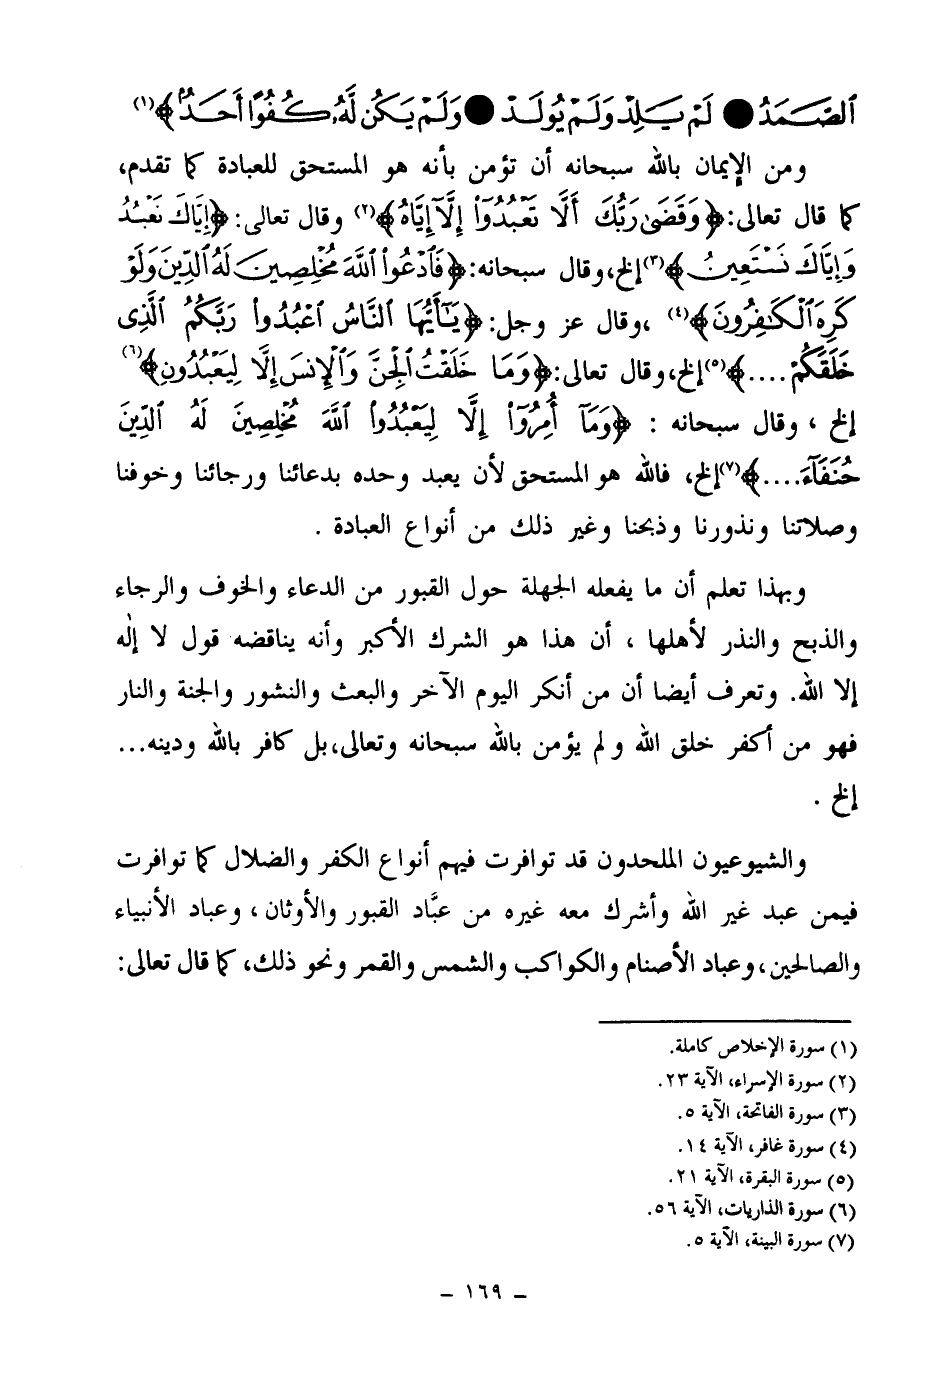 ٱلصَّمَدُ ● لَمْ يَلِدْ وَلَمْ يُولَدْ ● وَلَمْ يَكُن لَّهُۥ كُفُوًا أَحَدٌۢ﴾(١)
ومن الإيمان بالله سبحانه أن تؤمن بأنه هو المستحق للعبادة كما تقدم،
كما قال تعالى: ﴿وَقَضَىٰ رَبُّكَ أَلَّا تَعْبُدُوٓا۟ إِلَّآ إِيَّاهُ﴾(٢) وقال تعالى: ﴿إِيَّاكَ نَعْبُدُ
وَإِيَّاكَ نَسْتَعِينُ﴾(٣) إلخ، وقال سبحانه: ﴿فَٱدْعُوا۟ ٱللَّهَ مُخْلِصِينَ لَهُ ٱلدِّينَ وَلَوْ
كَرِهَ ٱلْكَـٰفِرُونَ﴾(٤) ، وقال عز وجل: ﴿يَـٰٓأَيُّهَا ٱلنَّاسُ ٱعْبُدُوا۟ رَبَّكُمُ ٱلَّذِى
خَلَقَكُمْ ....﴾(٥) إلخ، وقال تعالى: ﴿وَمَا خَلَقْتُ ٱلْجِنَّ وَٱلْإِنسَ إِلَّا لِيَعْبُدُونِ﴾(٦)
إلخ ، وقال سبحانه : ﴿وَمَآ أُمِرُوٓا۟ إِلَّا لِيَعْبُدُوا۟ ٱللَّهَ مُخْلِصِينَ لَهُ ٱلدِّينَ
حُنَفَآءَ ....﴾(٧) إلخ، فالله هو المستحق لأن يعبد وحده بدعائنا ورجائنا وخوفنا
وصلاتنا ونذورنا وذبحنا وغير ذلك من أنواع العبادة .
وبهذا تعلم أن ما يفعله الجهلة حول القبور من الدعاء والخوف والرجاء
والذبح والنذر لأهلها ، أن هذا هو الشرك الأكبر وأنه يناقضه قول لا إلٰه
إلا الله. وتعرف أيضا أن من أنكر اليوم الآخر والبعث والنشور والجنة والنار
فهو من أكفر خلق الله ولم يؤمن بالله سبحانه وتعالى، بل كافر بالله ودينه...
إلخ .
والشيوعيون الملحدون قد توافرت فيهم أنواع الكفر والضلال كما توافرت
فيمن عبد غير الله وأشرك معه غيره من عبَّاد القبور والأوثان، وعباد الأنبياء
والصالحين، وعباد الأصنام والكواكب والشمس والقمر ونحو ذلك، كما قال تعالى:
(١) سورة الإخلاص كاملة.
(٢) سورة الإسراء، الآية ٢٣.
(٣) سورة الفاتحة، الآية ٥.
(٤) سورة غافر، الآية ١٤.
(٥) سورة البقرة، الآية ٢١.
(٦) سورة الذاريات، الآية ٥٦.
(٧) سورة البينة، الآية ٥.
– ١٦٩ –